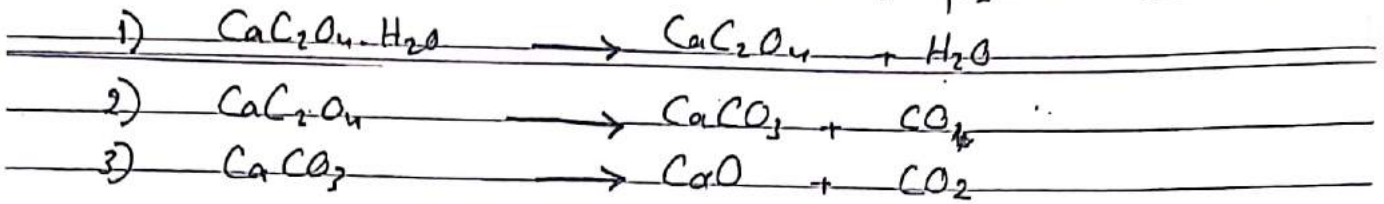 1) CaC₂O₄.H₂O → CaC₂O₄ + H₂O
2) CaC₂O₄ → CaCO₃ + CO
3) CaCO₃ → CaO + CO₂